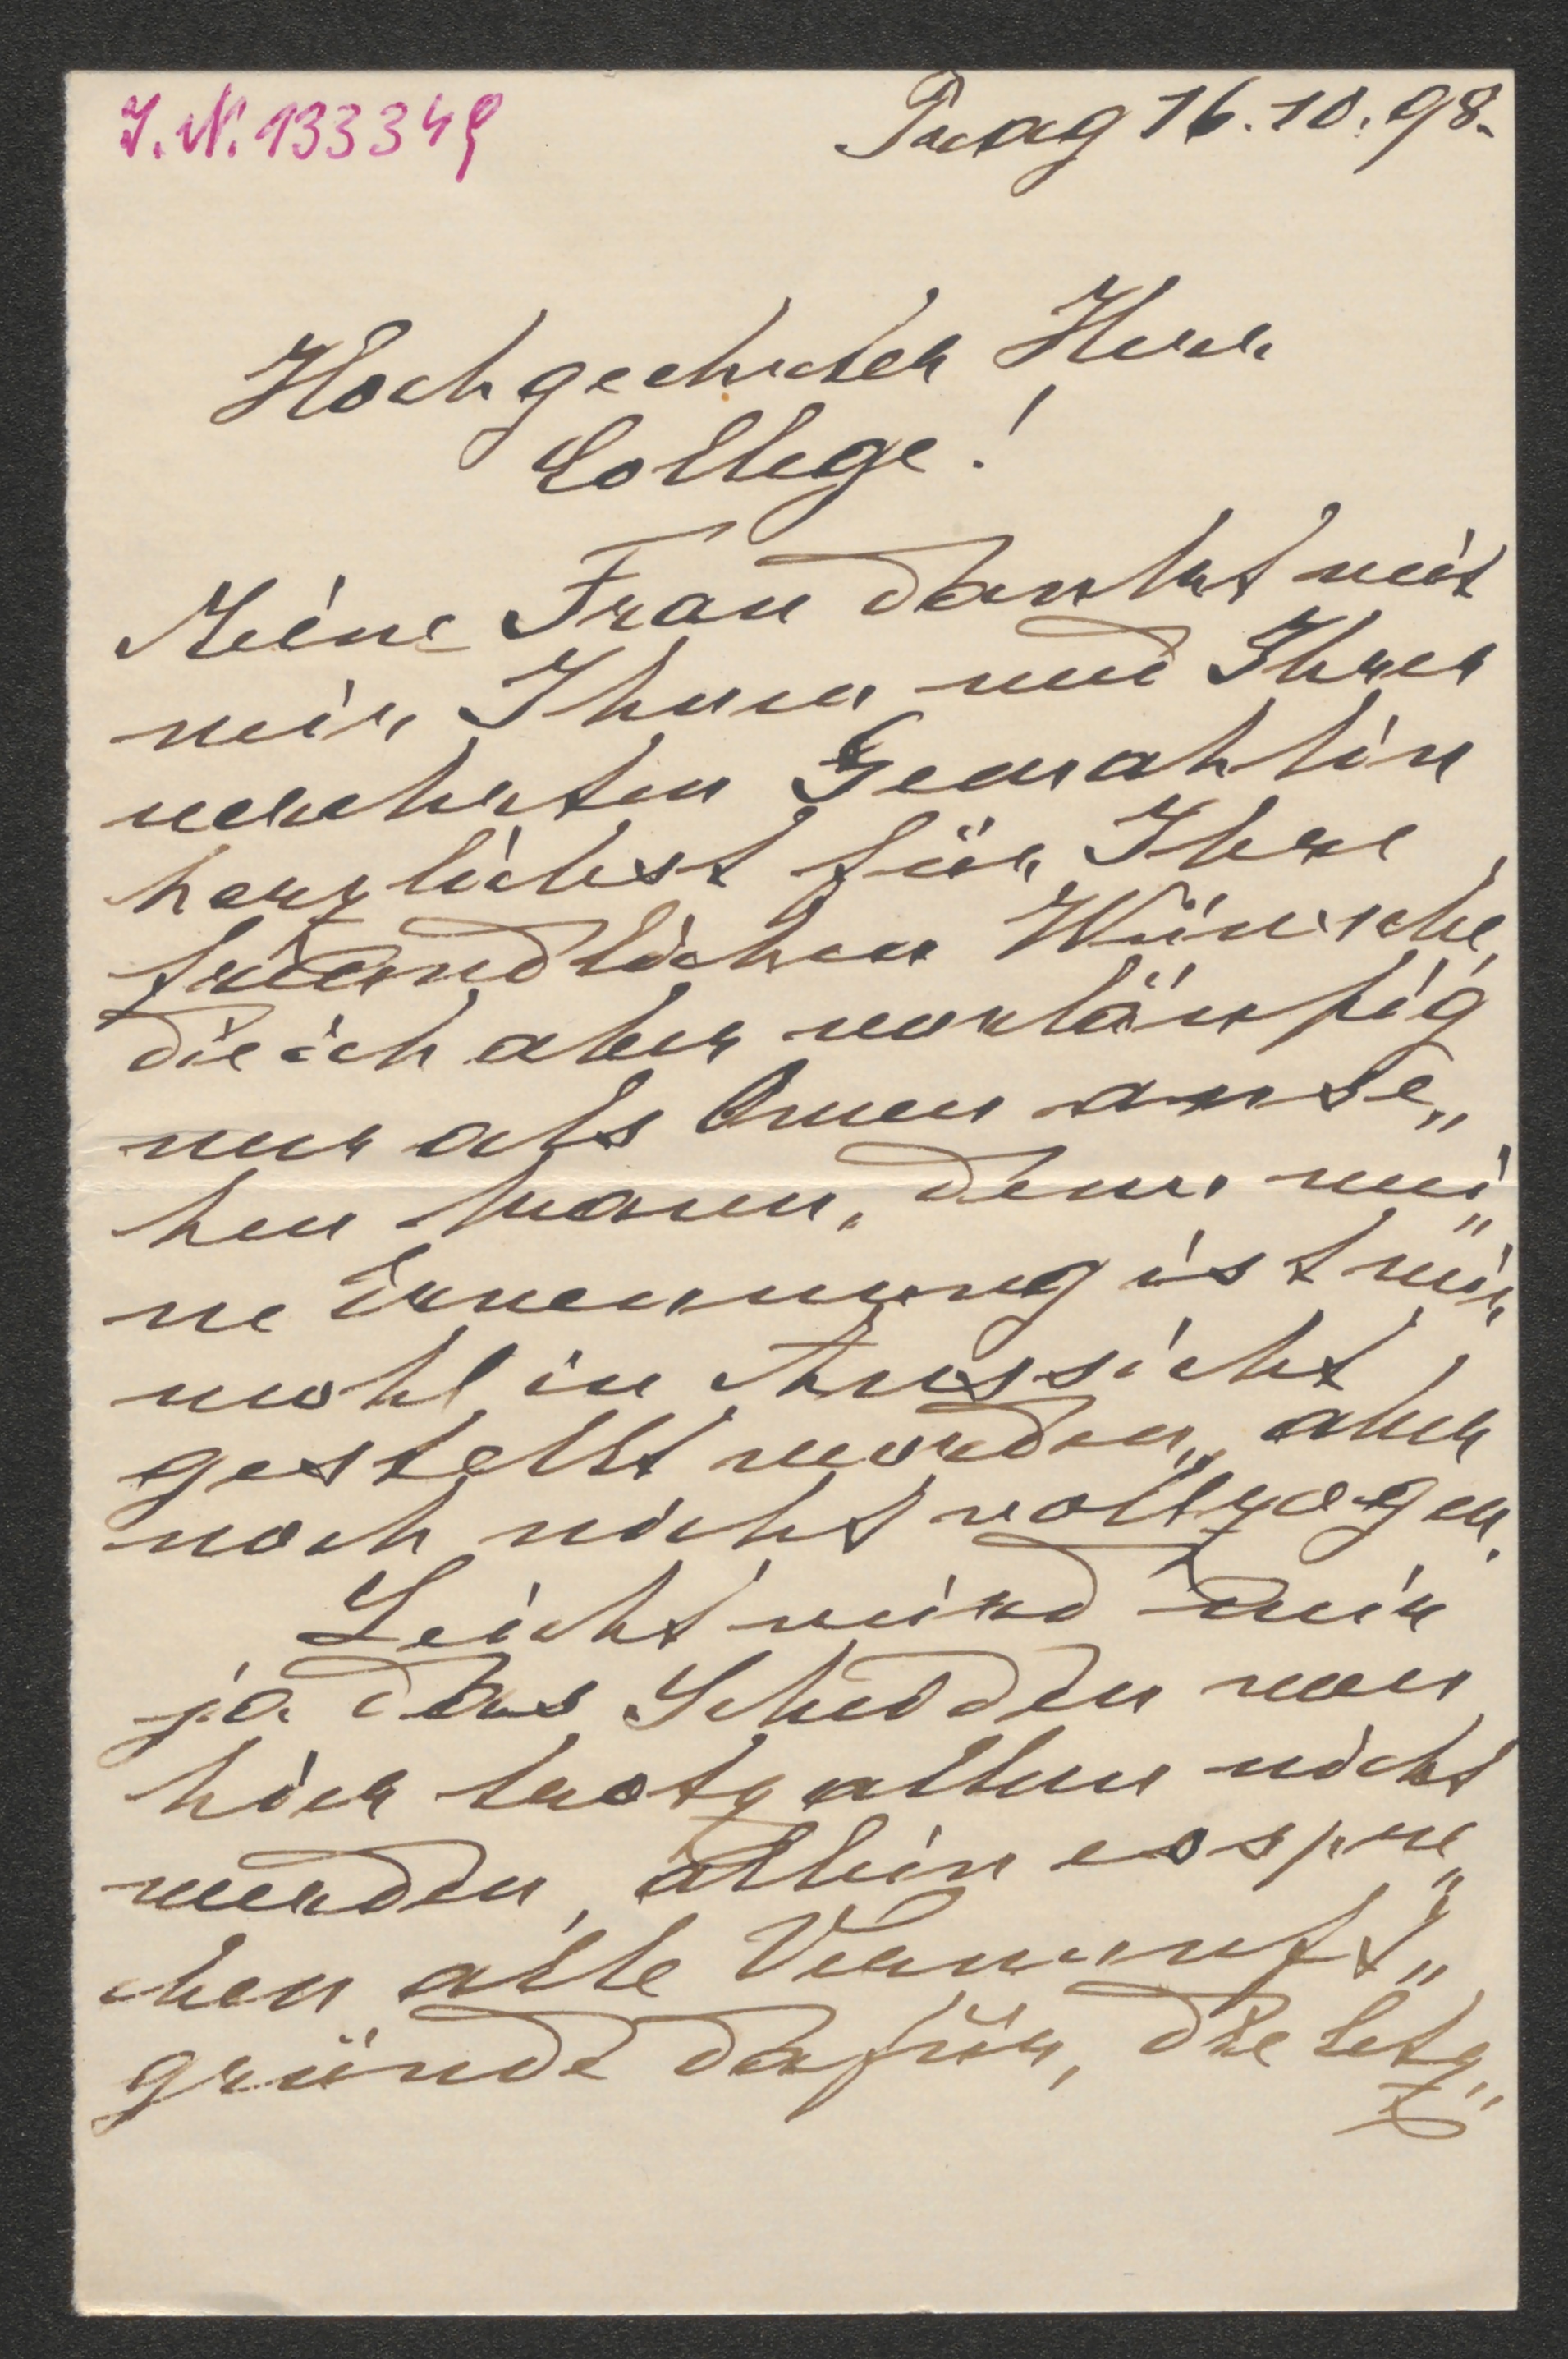 J. N. 133349
Prag 16.10.98.
Hochgeehrter Herr
College!
Meine Frau dankt mit
mir Ihnen und Ihrer
verehrten Gemahlin
herzlichst für Ihre
freundlichen Wünsche,
die ich aber vorläufig
nur als Omen anse„
hen kann, denn mei„
ne Ernennung ist mir
wohl in Aussicht
gestellt worden, aber
noch nicht vollzogen.
Leicht wird mir
ja das Scheiden von
hier trotz allem nicht
werden, allein es spre„
chen alle Vernunft„
gründe dafür, die letz„